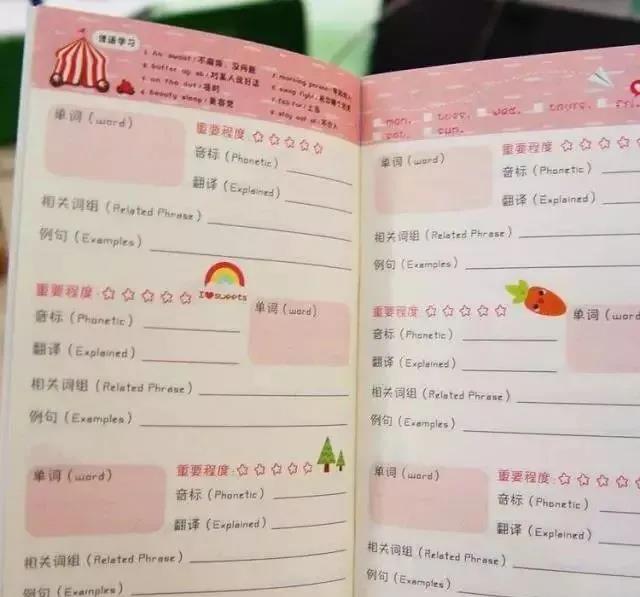 俚语学习
1. no sweat:不麻烦,没问题
2. butter up sb:对某人说好话
3. on the dot:准时
4. beauty sleep:美容觉
7. far far:
8. stay out of:不介入
单词(word)
重要程度:
音标(Phonetic)
翻译(Explained)
相关词组(Related Phrase)
例句(Examples)
重要程度:
I sweets
单词(word)
音标(Phonetic)
翻译(Explained)
相关词组(Related Phrase)
例句(Examples)
单词(word)
重要程度:
音标(Phonetic)
翻译(Explained)
相关词组(Related Phrase)
例句(Examples)
mon. tues. wed. thurs. fri.
sat. sun.
单词(word)
重要程度
音标(Phonetic)
翻译(Explained)
相关词组(Related Phrase)
例句(Examples)
重要程度
单词(word
音标(Phonetic)
翻译(Explained)
相关词组(Related Phrase)
例句(Examples)
单词(word)
重要程度:
音标(Phonetic)
翻译(Explained)
相关词组(Related Phrase)
例句(Examples)